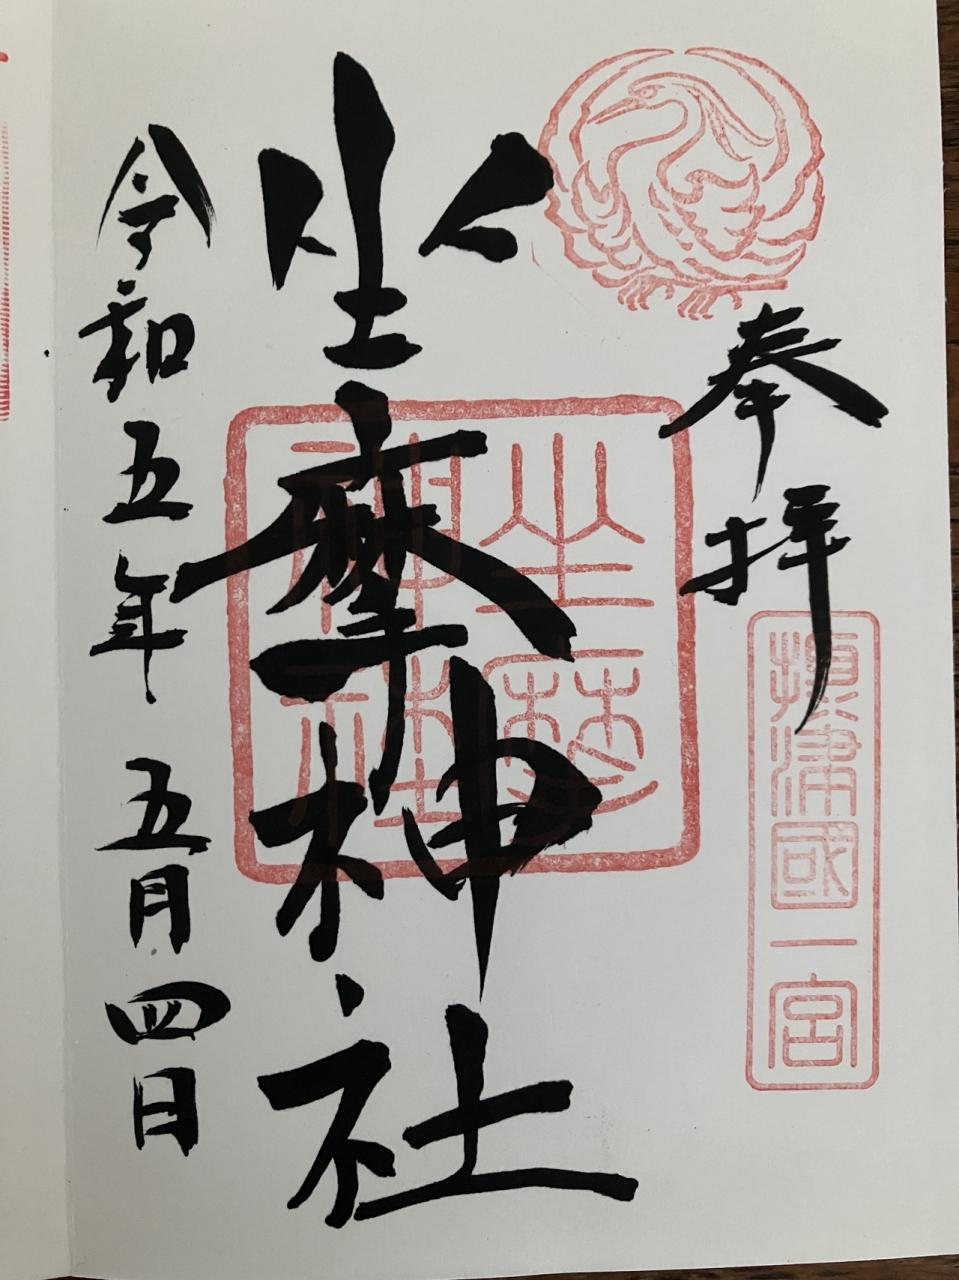 奉拝
攝津國一宮
坐摩神社
坐摩
神社
令和五年 五月四日